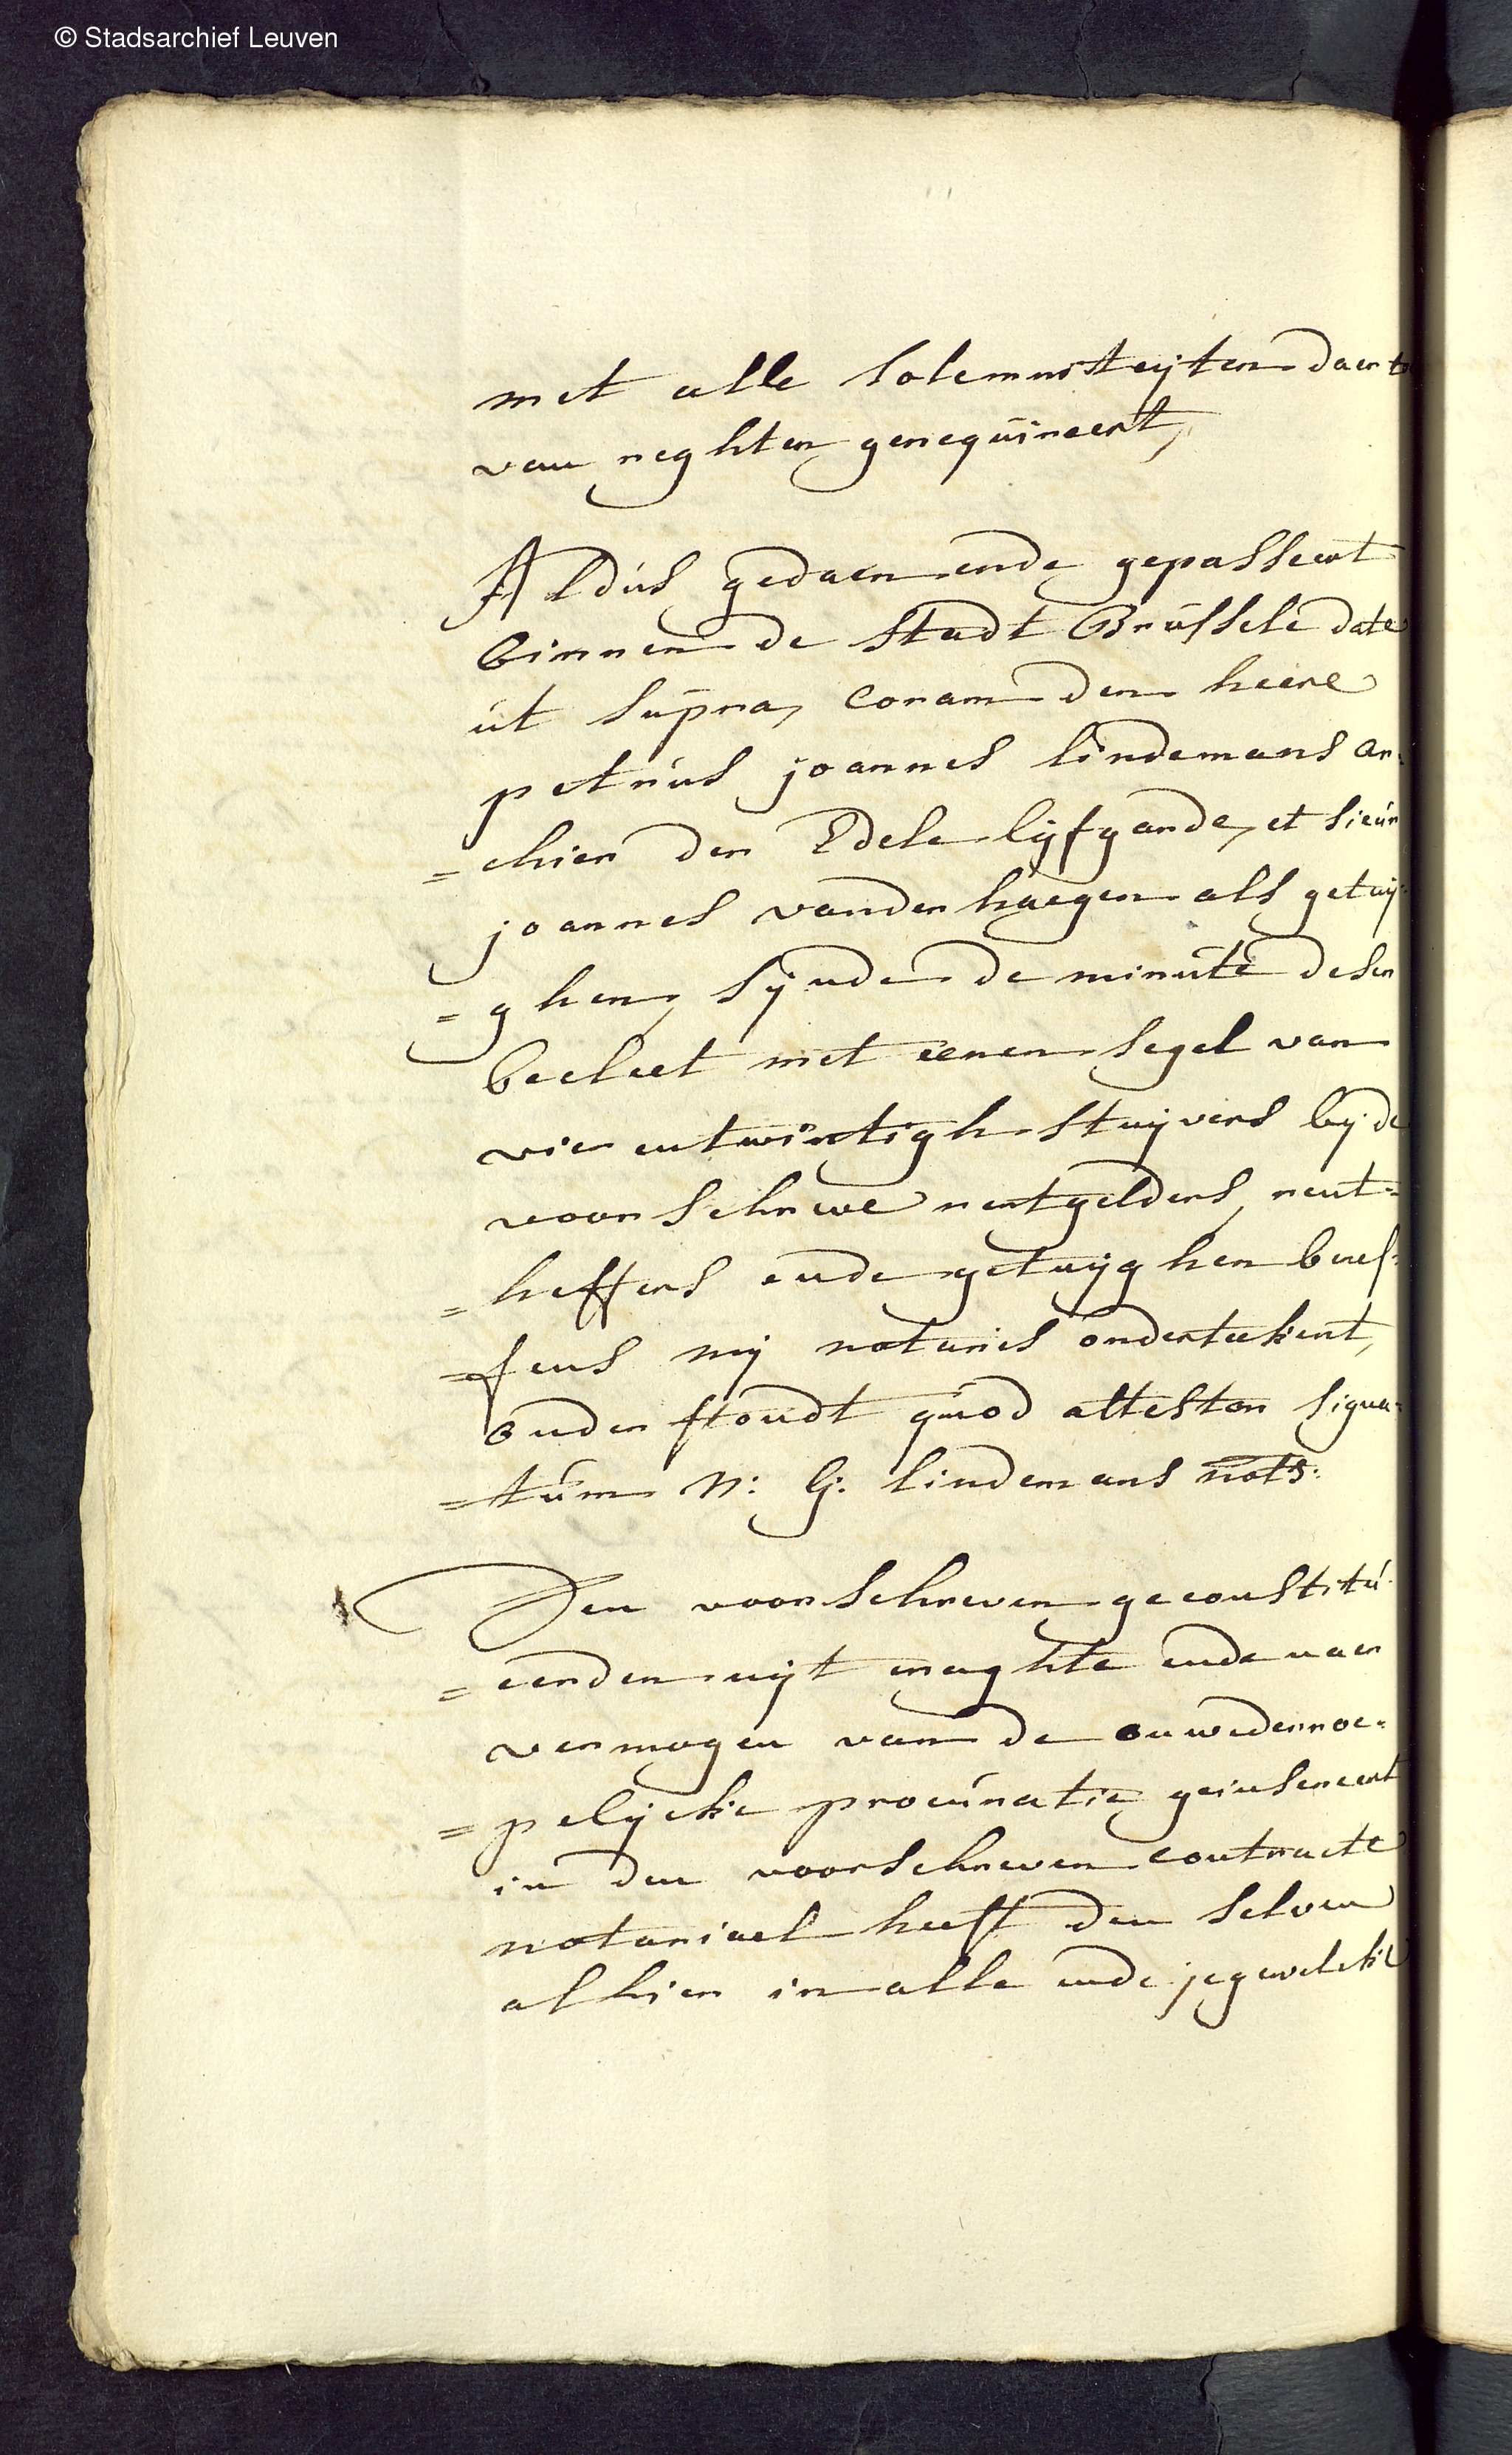 © Stadsarchief Leuven
met alle solemniteijten daer to
van reghten gerequireert,
Aldus gedaen ende gepasseert
binnen de stadt Brussele date
ut supra, coram den heere
petrus joannes lindemans ar
= chier der Edele lijfgarde, et sieur
joannes vander haegen als getuij
= ghen, sijnde de minute deser
becleet met eenen segel van
vier entwintigh stuijvers bij de
voorschreve rentgelders, rent=
= heffers ende getuijghen benef=
= fens mij notaris onderteekent,
onderstondt quod attestor signa=
= tum N: G: lindemans nots:
Den voorschreven geconstitu
= eerden uijt maghte ende naer
vermogen van de onwederroe=
= pelijcke procuratie geinsereert
in den voorschreven contracte
notariael heeft den selven
alhier in alle ende jegewelcke